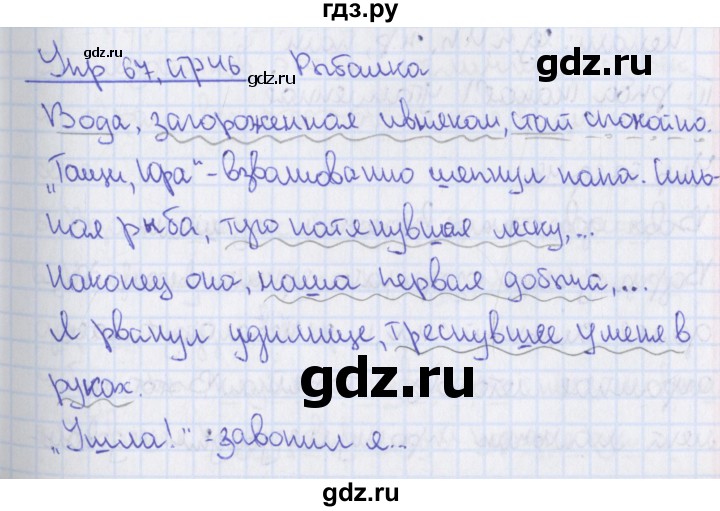 гдз.ру
Упр 67, стр 46 Рыбалка
gdz.ru gdz.ru gdz.ru
Вода, загороженная ивняком, стоит спокойно.
„Тащи, Юра“ - взволнованно шепнул папа. Силь-
ная рыба, туго натянувшая леску,...
gdz.ru gdz.ru
Наконец она, наша первая добыча,...
Я рванул удилище, треснувшее у меня в
gdz.ru
руках.
gdz.ru gdz.ru
„Ушла!“ - завопил я...
gdz.ru